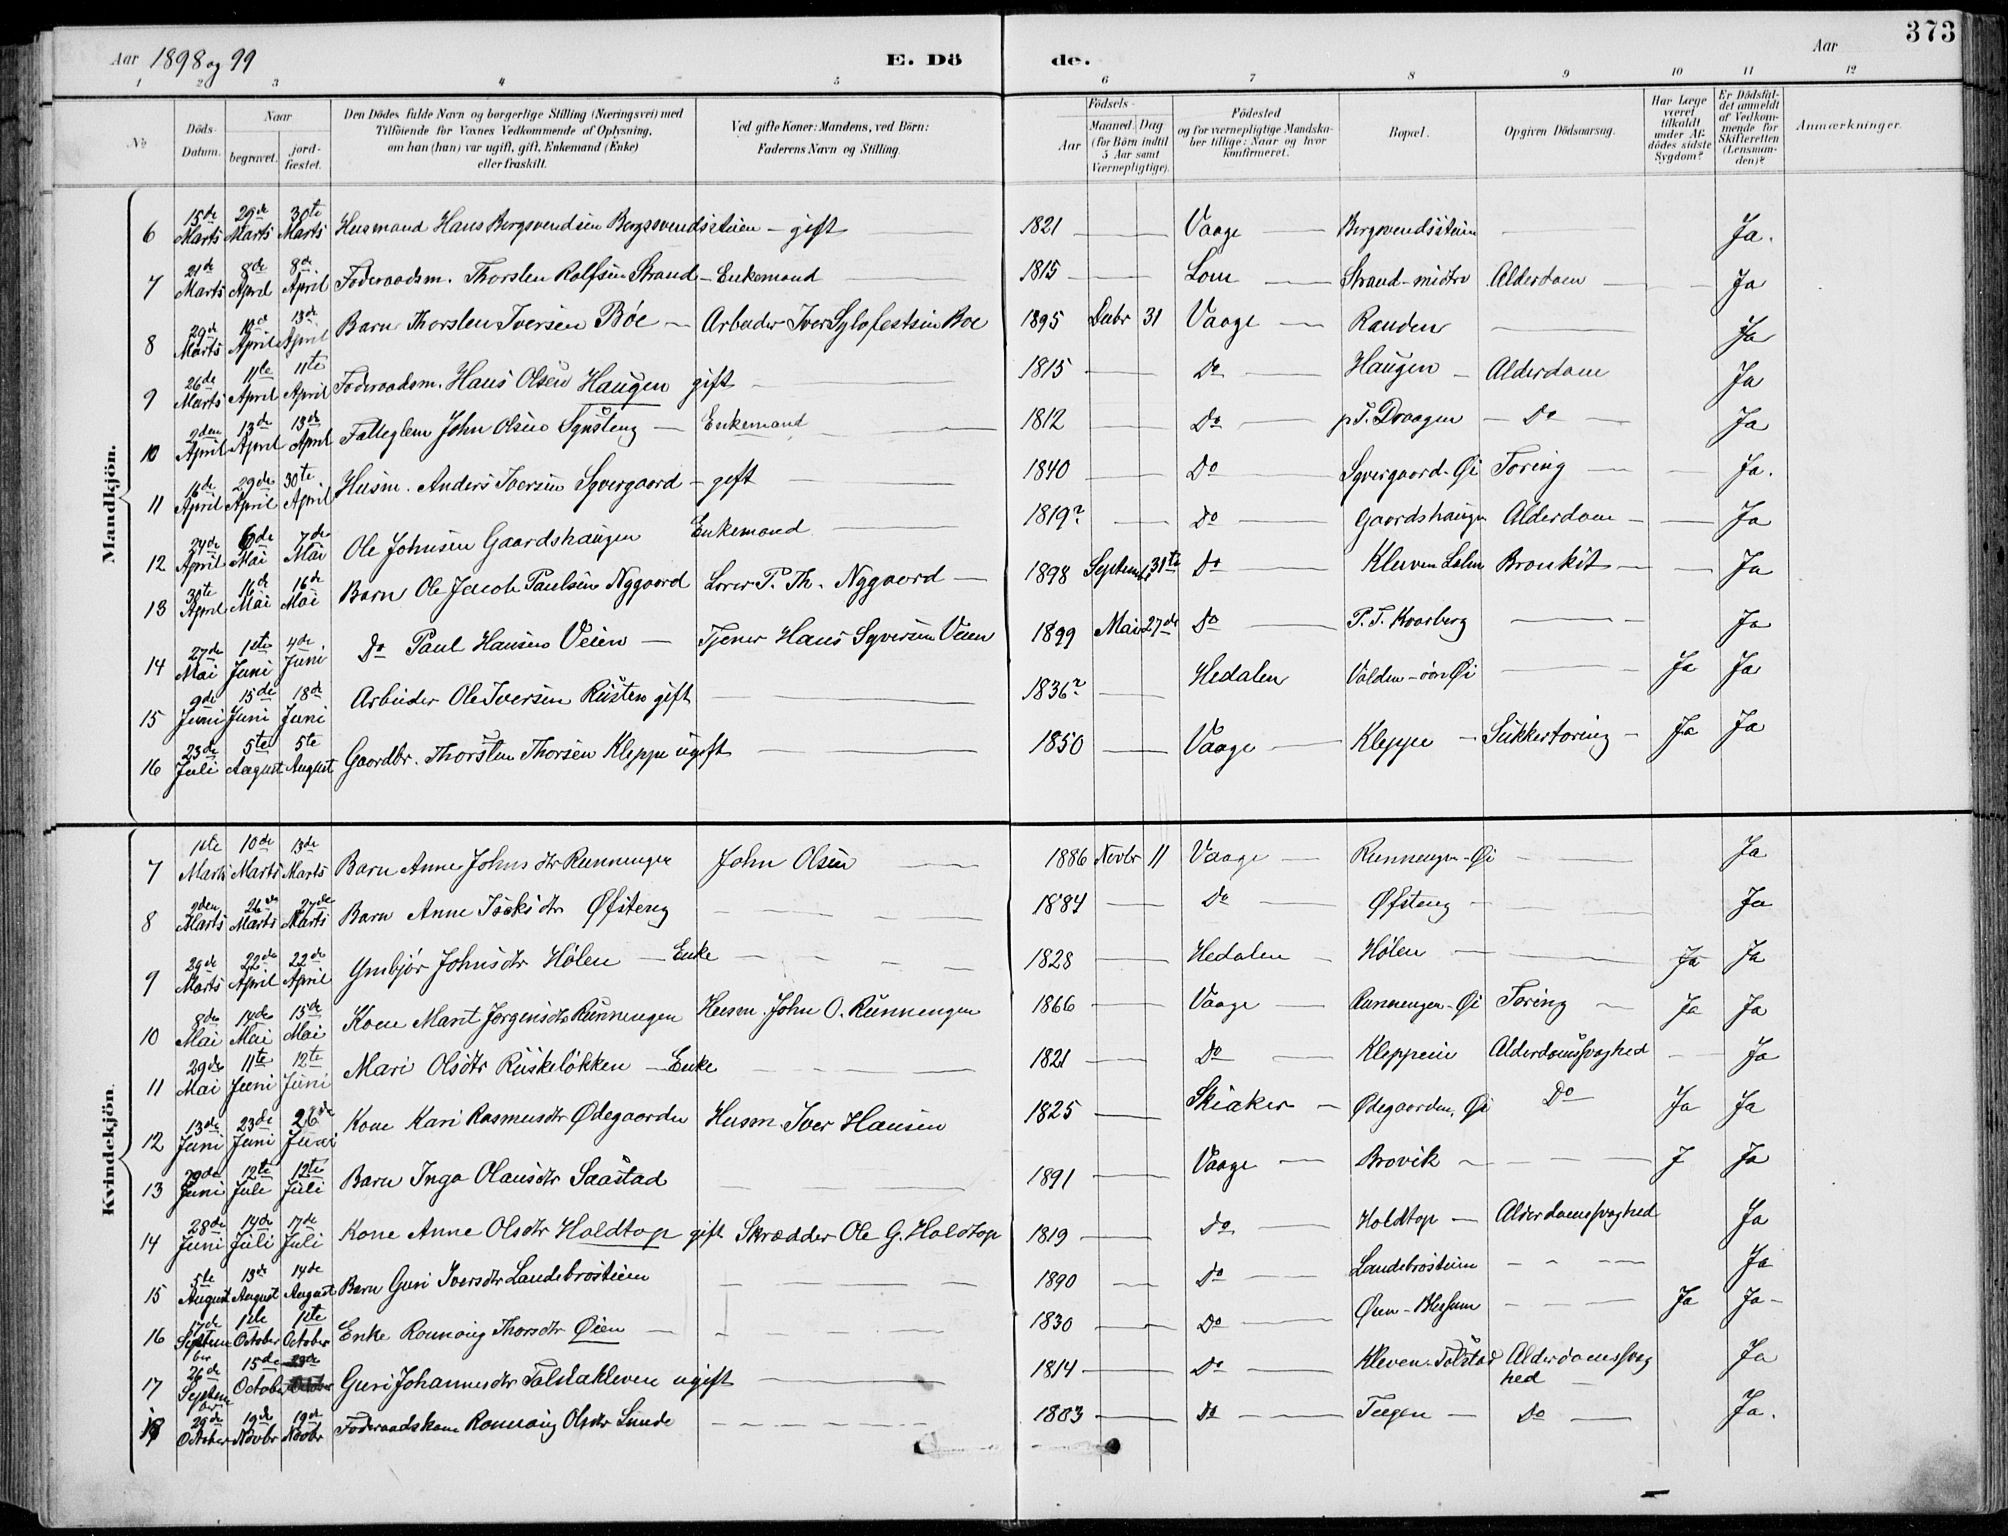 373
Aar 1898 og 99 E. Dö de. Aar
1 2 3 4 5 6 7 8 9 10 11 12
No Döds-Datum. Naar begravet. jordfæstet. Den Dödes fulde Navn og borgerlige Stilling (Næringsvei) med Tilföiende for Voxnes Vedkommende af Oplysning, om han (hun) var ugift, gift, Enkemand (Enke) eller fraskilt. Ved gifte Koner: Mandens, ved Börn: Faderens Navn og Stilling. Födsels- Aar Maaned. Dag (for Börn indtil 5 Aar samt Værnepligtige). Födested og for værnepligtige Mandskaber tillige: Naar og hvor konfirmeret. Bopæl. Opgiven Dödsaarsag. Har Læge været tilkaldt under Afdödes sidste Sygdom? Er Dödsfaldet anmeldt af Vedkommende for Skifteretten (Lensmanden)? Anmærkninger.
Mandkjön.
6 15de Marts 29de Marts 30te Marts Husmand Hans Bergsvendsen Bergssvendsstuen – gift 1821 Vaage Bergsvendsstuen Ja.
7 21de Marts 8de April 8de April Foderaadsm. Thorsten Rolfsen Strand – Enkemand 1815 Lom Strand-midtre Alderdom Ja
8 29de Marts April 13de April Barn Thorsten Iversen Böe – Arbeider Iver Sylvfestsen Boe 1895 Decbr 31 Vaage Randen Ja
9 26de Marts 11te April 11te April Foderaadsm. Hans Olsen Haugen gift 1815 Do Haugen – Alderdom Ja
10 2den April 13de April 13de April Fatteglem John Olsen Synsteng – Enkemand 1812 Do p.T. Draagen – Do – Ja
11 16de April 29de April 30te April Husm. Anders Iversen Syvergaard – gift 1840 Do Syvergaard-Øi Tæring Ja.
12 24de April 6de Mai 7de Mai Ole Johnsen Gaardshaugen Enkemand 1819? Do Gaardshaugen Alderdom – Ja
13 30te April 16de Mai 16de Mai Barn Ole Jacob Paulsen Nygaard Lærer P. Th. Nygaard 1898 Septembr 31te Do Kleven Lalm Bronkit – Ja
14 27de Mai 1ste Juni 4de Juni Do Paul Hansen Veien – Tjener Hans Syversen Veien 1899 Mai 27de Do P.T. Kvarberg Ja
15 9de Juni 15de Juni 18de Juni Arbeider Ole Iversen Rusten gift 1836? Hedalen Valden-Øi Ja Ja
16 23de Juli 5te August 5te August Gaardbr. Thorsten Thorsen Kleppe ugift 1850 Vaage Kleppe – Sukkertæring – Ja Ja
Kvindekjön.
7 1ste Marts 10de Marts 13de Marts Barn Anne Johnsdtr Runningen John Olsen 1886 Novbr 11 Vaage Runnengen-Øi Ja
8 2den Marts 26de Marts 27de Marts Barn Anne Isaksdtr Øfsteng 1884 Do Øfsteng Ja
9 29de Marts 22de April 22de April Gmbjør Johnsdtr Holen – Enke 1828 Hedalen Hölen Ja Ja
10 8de Mai 14de Mai 15de Mai Kone Marit Jørgensdtr Runnengen Husm. John O. Runnengen 1866 Vaage Runnengen-Øi Tæring Ja Ja
11 29de Mai 11te Juni 12te Juni Mari Olsdtr Ruskeløkken – Enke 1821 Do Kleppene Alderdomssvaghed Ja
12 13de Juni 23de Juni 26de Juni Kone Kari Rasmusdtr Ødegaarden Husm. Iver Hansen 1825 Skiaker Ødegaarden, Øi Do Ja Ja
13 29de Juni 12te Juli 12te Juli Barn Inga Olausdtr Saastad 1891 Vaage Brovik J Ja
14 28de Juni 14de Juli 17de Juli Kone Anne Olsdtr Holdtop gift Skrædder Ole G. Holdtop 1819 Do Holdtop – Alderdomssvaghed Ja
15 5te August 13de August 14de August Barn Guri Iversdtr Landebrostuen 1890 Do Landebrostuen Ja
16 17de September 1ste October 1ste October Enke Rønnaug Thorsdtr Øien 1830 Do Øien-Blessum Ja Ja
17 26de September 15de October 23de Guri Johannesdtr Tolstadkleven ugift 1814 Do Kleven-Tolstad Alderdomssvaghed Ja
18 29de October 19de Novbr 19de Novbr Foderaadskone Rønnaug Olsdtr Sunde 1803 Do Teegen – Do – Ja.